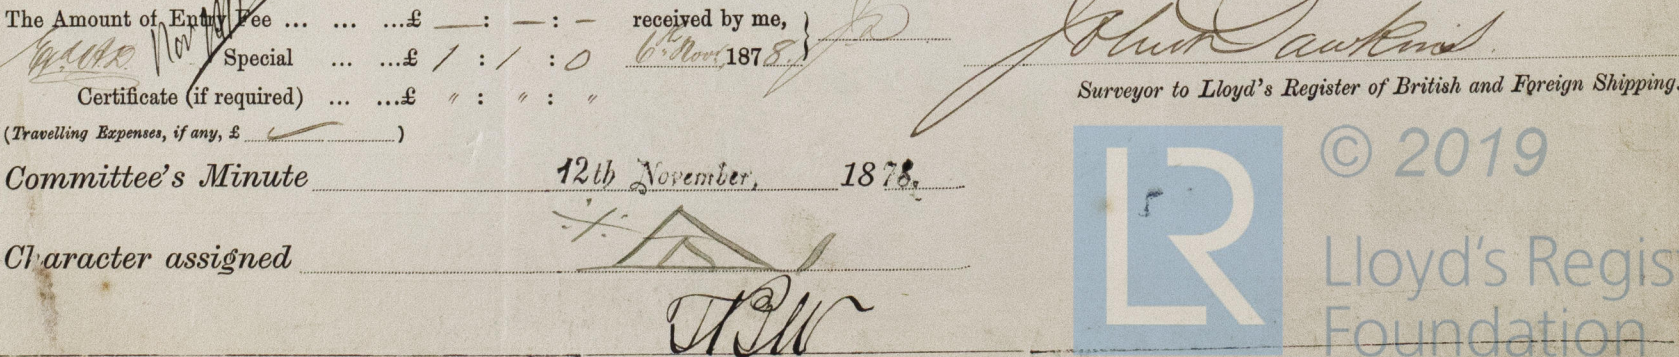 The Amount of Entry Fee ... ... ...£ — : — : — received by me,
Special ... ...£ 1 : 1 : 0 6th Novr 1878.
Certificate (if required) ... ...£ " : " : "
(Travelling Expenses, if any, £ ✓ )
John Dawkins.
Surveyor to Lloyd's Register of British and Foreign Shipping.
Committee's Minute 12th November, 1878.
Character assigned A 1
LR
© 2019
Lloyd's Regis
Foundation